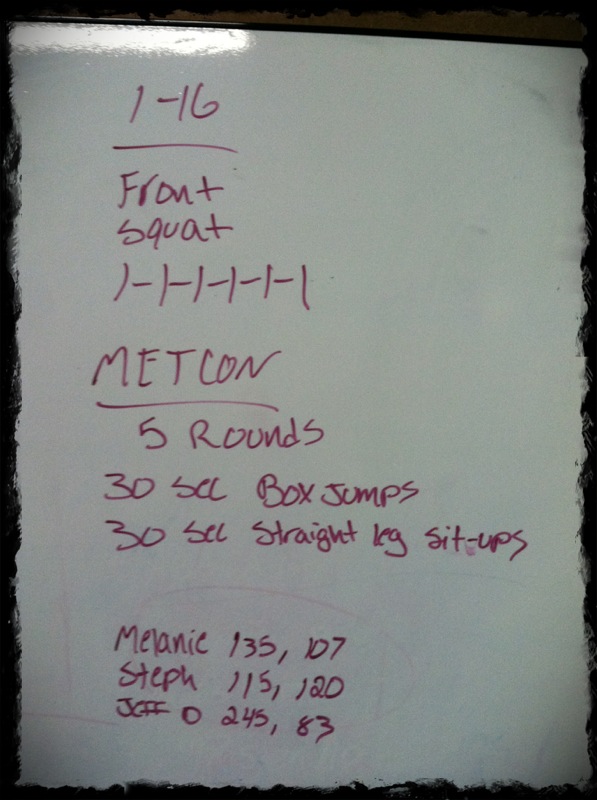 1-16
Front
squat
1-1-1-1-1-1
METCON
5 Rounds
30 sec Box Jumps
30 sec straight leg sit-ups
Melanie 135, 107
Steph 115, 120
Jeff O 245, 83